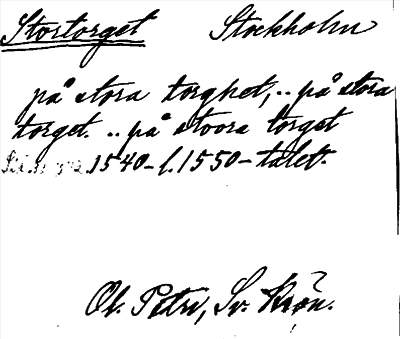 Stortorget Stockholm
på stora torghet, .. på stora
torget. .. på stoora torget
1540-l. 1550-talet.
Ol. Petri, Sv. Krön.